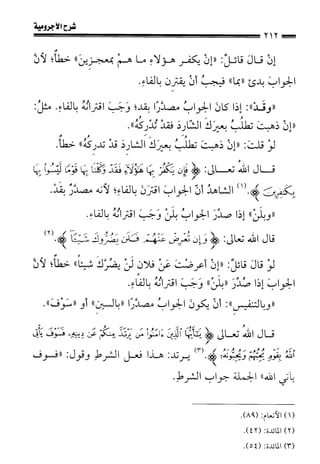 شرح الآجرومية
٢١٢
إن قال قائل: «إنْ يكفر هؤلاء ما هم بمعجزين» خطأ؛ لأنَّ
الجواب بدئ «بما» فيجبُ أن يقترن بالفاء.
«وقَدْ»: إذا كانَ الجوابُ مصدَّرًا بقد؛ وَجَبَ اقترانُهُ بالفاءِ. مثل:
«إنْ ذهبتَ تطلُبُ بعيرَكَ الشاردَ فقدْ تُدْرِكُهُ».
لوْ قلتَ: «إنْ ذهبتَ تطلُبُ بعيرَكَ الشاردَ قدْ تدركُهُ» خطأ.
قال اللهُ تعالى: ﴿فَإِن يَكْفُرْ بِهَا هَٰؤُلَاءِ فَقَدْ وَكَّلْنَا بِهَا قَوْمًا لَّيْسُوا بِهَا
بِكَافِرِينَ﴾.(١) الشاهدُ أنَّ الجوابَ اقترَنَ بالفاءِ؛ لأنه مصدَّرٌ بقَدْ.
«وبلَنْ» إذا صدِّرَ الجوابُ بلَنْ وَجَبَ اقترانُهُ بالفاءِ.
قال اللهُ تعالى: ﴿وَإِن تُعْرِضْ عَنْهُمْ فَلَن يَضُرُّوكَ شَيْئًا﴾.(٢)
لوْ قالَ قائلٌ: «إنْ أعرضْتَ عَنْ فلانٍ لَنْ يضرَّكَ شيئاً» خطأ؛ لأنَّ
الجوابَ إذا صُدِّرَ «بلَنْ» وَجَبَ اقترانُهُ بالفاءِ.
«وبالتنفيس»: أنْ يكونَ الجوابُ مصدَّرًا «بالسين» أو «سَوْفَ».
قال اللهُ تعالى ﴿يَا أَيُّهَا الَّذِينَ آمَنُوا مَن يَرْتَدَّ مِنكُمْ عَن دِينِهِ فَسَوْفَ يَأْتِي
اللَّهُ بِقَوْمٍ يُحِبُّهُمْ وَيُحِبُّونَهُ﴾.(٣) يرتد: هذا فعل الشرط وقول: «فسوف
يأتي الله» الجملة جواب الشرط.
(١) الأنعام: (٨٩).
(٢) المائدة: (٤٢).
(٣) المائدة: (٥٤).